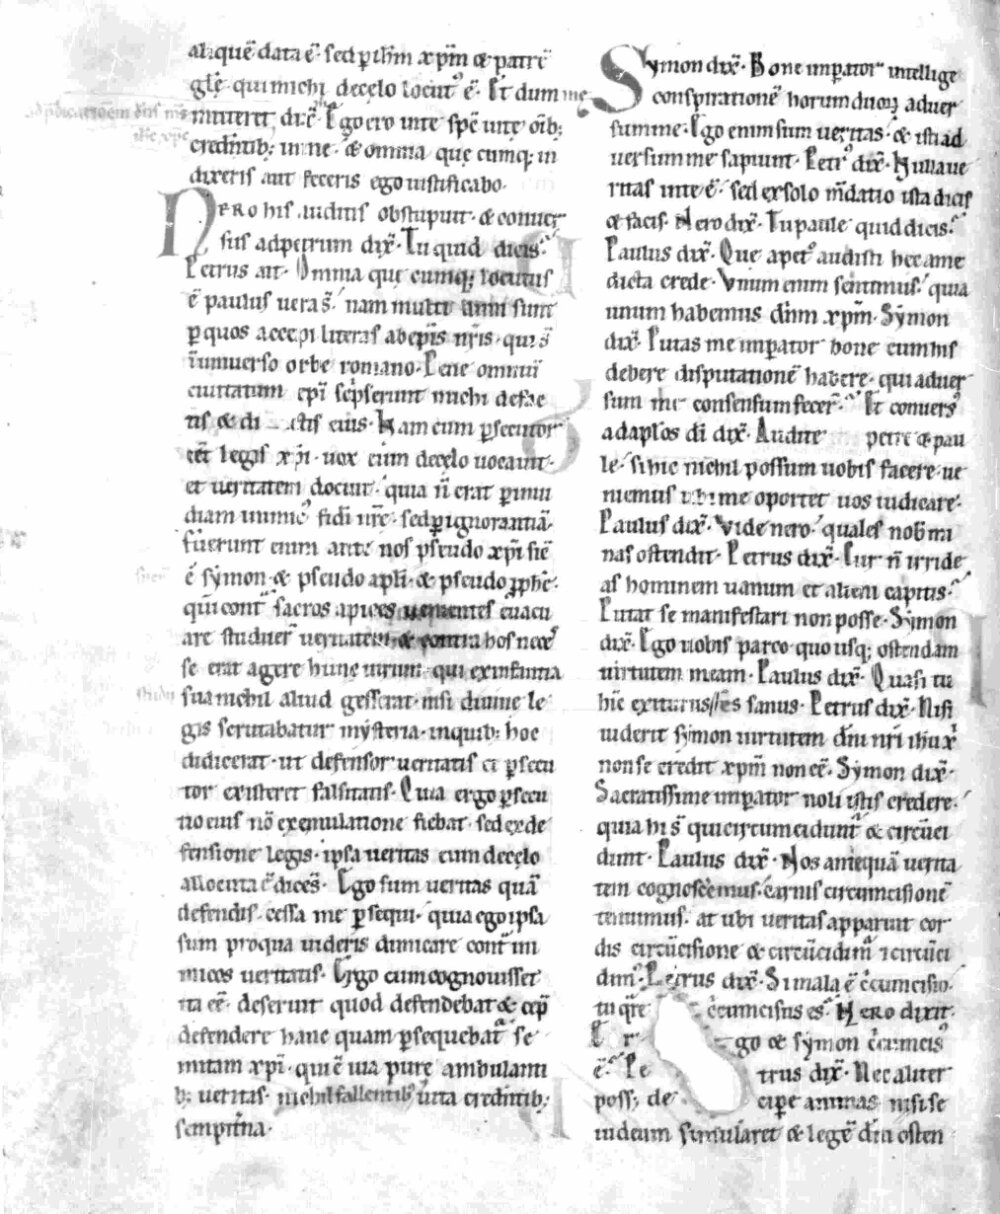 aliquē data ē· sed p ihm̄ xp̄m & patrē
glē· qui michi de cęlo locut᷒ ē· Et dum me
mitteret dix̄· Ego ero in te sp̄c uitę· om̄ib;
credentib; in me· & omnia quę cumq; in
dixeris aut feceris ego iustificabo·
Nero his auditis obstupuit· & conuer
sus ad petrum dix̄· Tu quid dicis·
Petrus ait· Omnia quę cumq; locutus
ē paulus uera s̄· nam multi anni sunt
p quos accepi literas ab ep̄is nr̄is· qui s̄
in uniuerso orbe romano· Pene omniū
ciuitatum ep̄i sc̄pserunt michi de fac
tis & di ctis eius· Nam cum psecutor
cēt legis xp̄i· uox eum de cęlo uocauit·
et ueritatem docuit· quia n̄ erat p inui
diam inimic᷒ fidi nr̄e· sed p ignorantiā·
fuerunt enim ante nos pseudo xp̄i sic̄
ē symon· & pseudo apl̄i· & pseudo pphē·
qui cont̄ sacros apices uenientes euacu
are studuer̄ ueritatem· & contra hos nec̄
se erat agere hunc uirum· qui ex infantia
sua nichil aliud gesserat· nisi diuine le
gis scrutabatur mysteria· in quib; hoc
didicerat· ut defensor ueritatis et psecu
tor existeret falsitatis· Quia ergo psecu
tio eius nō ex emulatione fiebat· sed ex de
fensione legis· ipsa ueritas eum de cęlo
allocuta ē dicēs· Ego sum ueritas quā
defendis· cessa me psequi· quia ego ipsa
sum pro qua uideris dimicare cont̄ ini
micos ueritatis· Ergo cum cognouisset
ita eē· deseruit quod defendebat & cep̄
defendere hanc quam psequebat̄ se
mitam xp̄i· qui ē uia pure ambulanti
b; ueritas· nichil fallentib᷒ uita credētib;
sempit̄na·
Symon dix̄· Bone imperator intellige
conspirationē horum duorꝝ aduer
sum me· Ego enim sum ueritas· & isti ad
uersum me sapiunt· Petr᷒ dix̄· Nulla ue
ritas in te ē· sed ex solo m̄datio ista dicis
& facis· Nero dix̄· Tu paule quid dicis·
Paulus dix̄· Que a pet᷒ audisti hec a me
dicta crede· Vnum enim sentimus· quia
unum habemus dn̄m xp̄m· Symon
dix̄· Putas me imperator bone cum his
debere disputationē habere· qui aduer
sum me consensum fecer̄· Et conuers᷒
ad apl̄os di dix̄· Audite petre & pau
le· si hic nichil possum uobis facere· ue
niemus ubi me oportet uos iudicare·
Paulus dix̄· Vide nero· quales nob mi
nas ostendit· Petrus dix̄· Cur n̄ irride
as hominem uanum et alieni capitis·
Putat se manifestari non posse· Symon
dix̄· Ego uobis parco quo usq; ostendam
uirtutem meam· Paulus dix̄· Quasi tu
hic exiturus es sanus· Petrus dix̄· Nisi
uiderit symon uirtutem dn̄i nr̄i ihu xp̄i
non se credit xp̄m non eē· Symon dix̄·
Sacratissime imperator noli istis credere·
quia hi s̄ qui circumcidunt̄ & circūci
dunt· Paulus dix̄· Nos antequā uerita
tem cognoscemus· carnis circumcisionē
tenuimus· at ubi ueritas apparuit cor
dis circūcisione & circūcidim̄ ⁊ circūci
dim̄· Petrus dix̄· Si mala ē c̄cumcisio·
tu q̄re c̄cumcisus es· Nero dixit·
E r go & symon c̄cumcis᷒
ē· Pe trus dix̄· Nec aliter
poss; de cipe animas nisi se
iudeum simularet & legē di osten